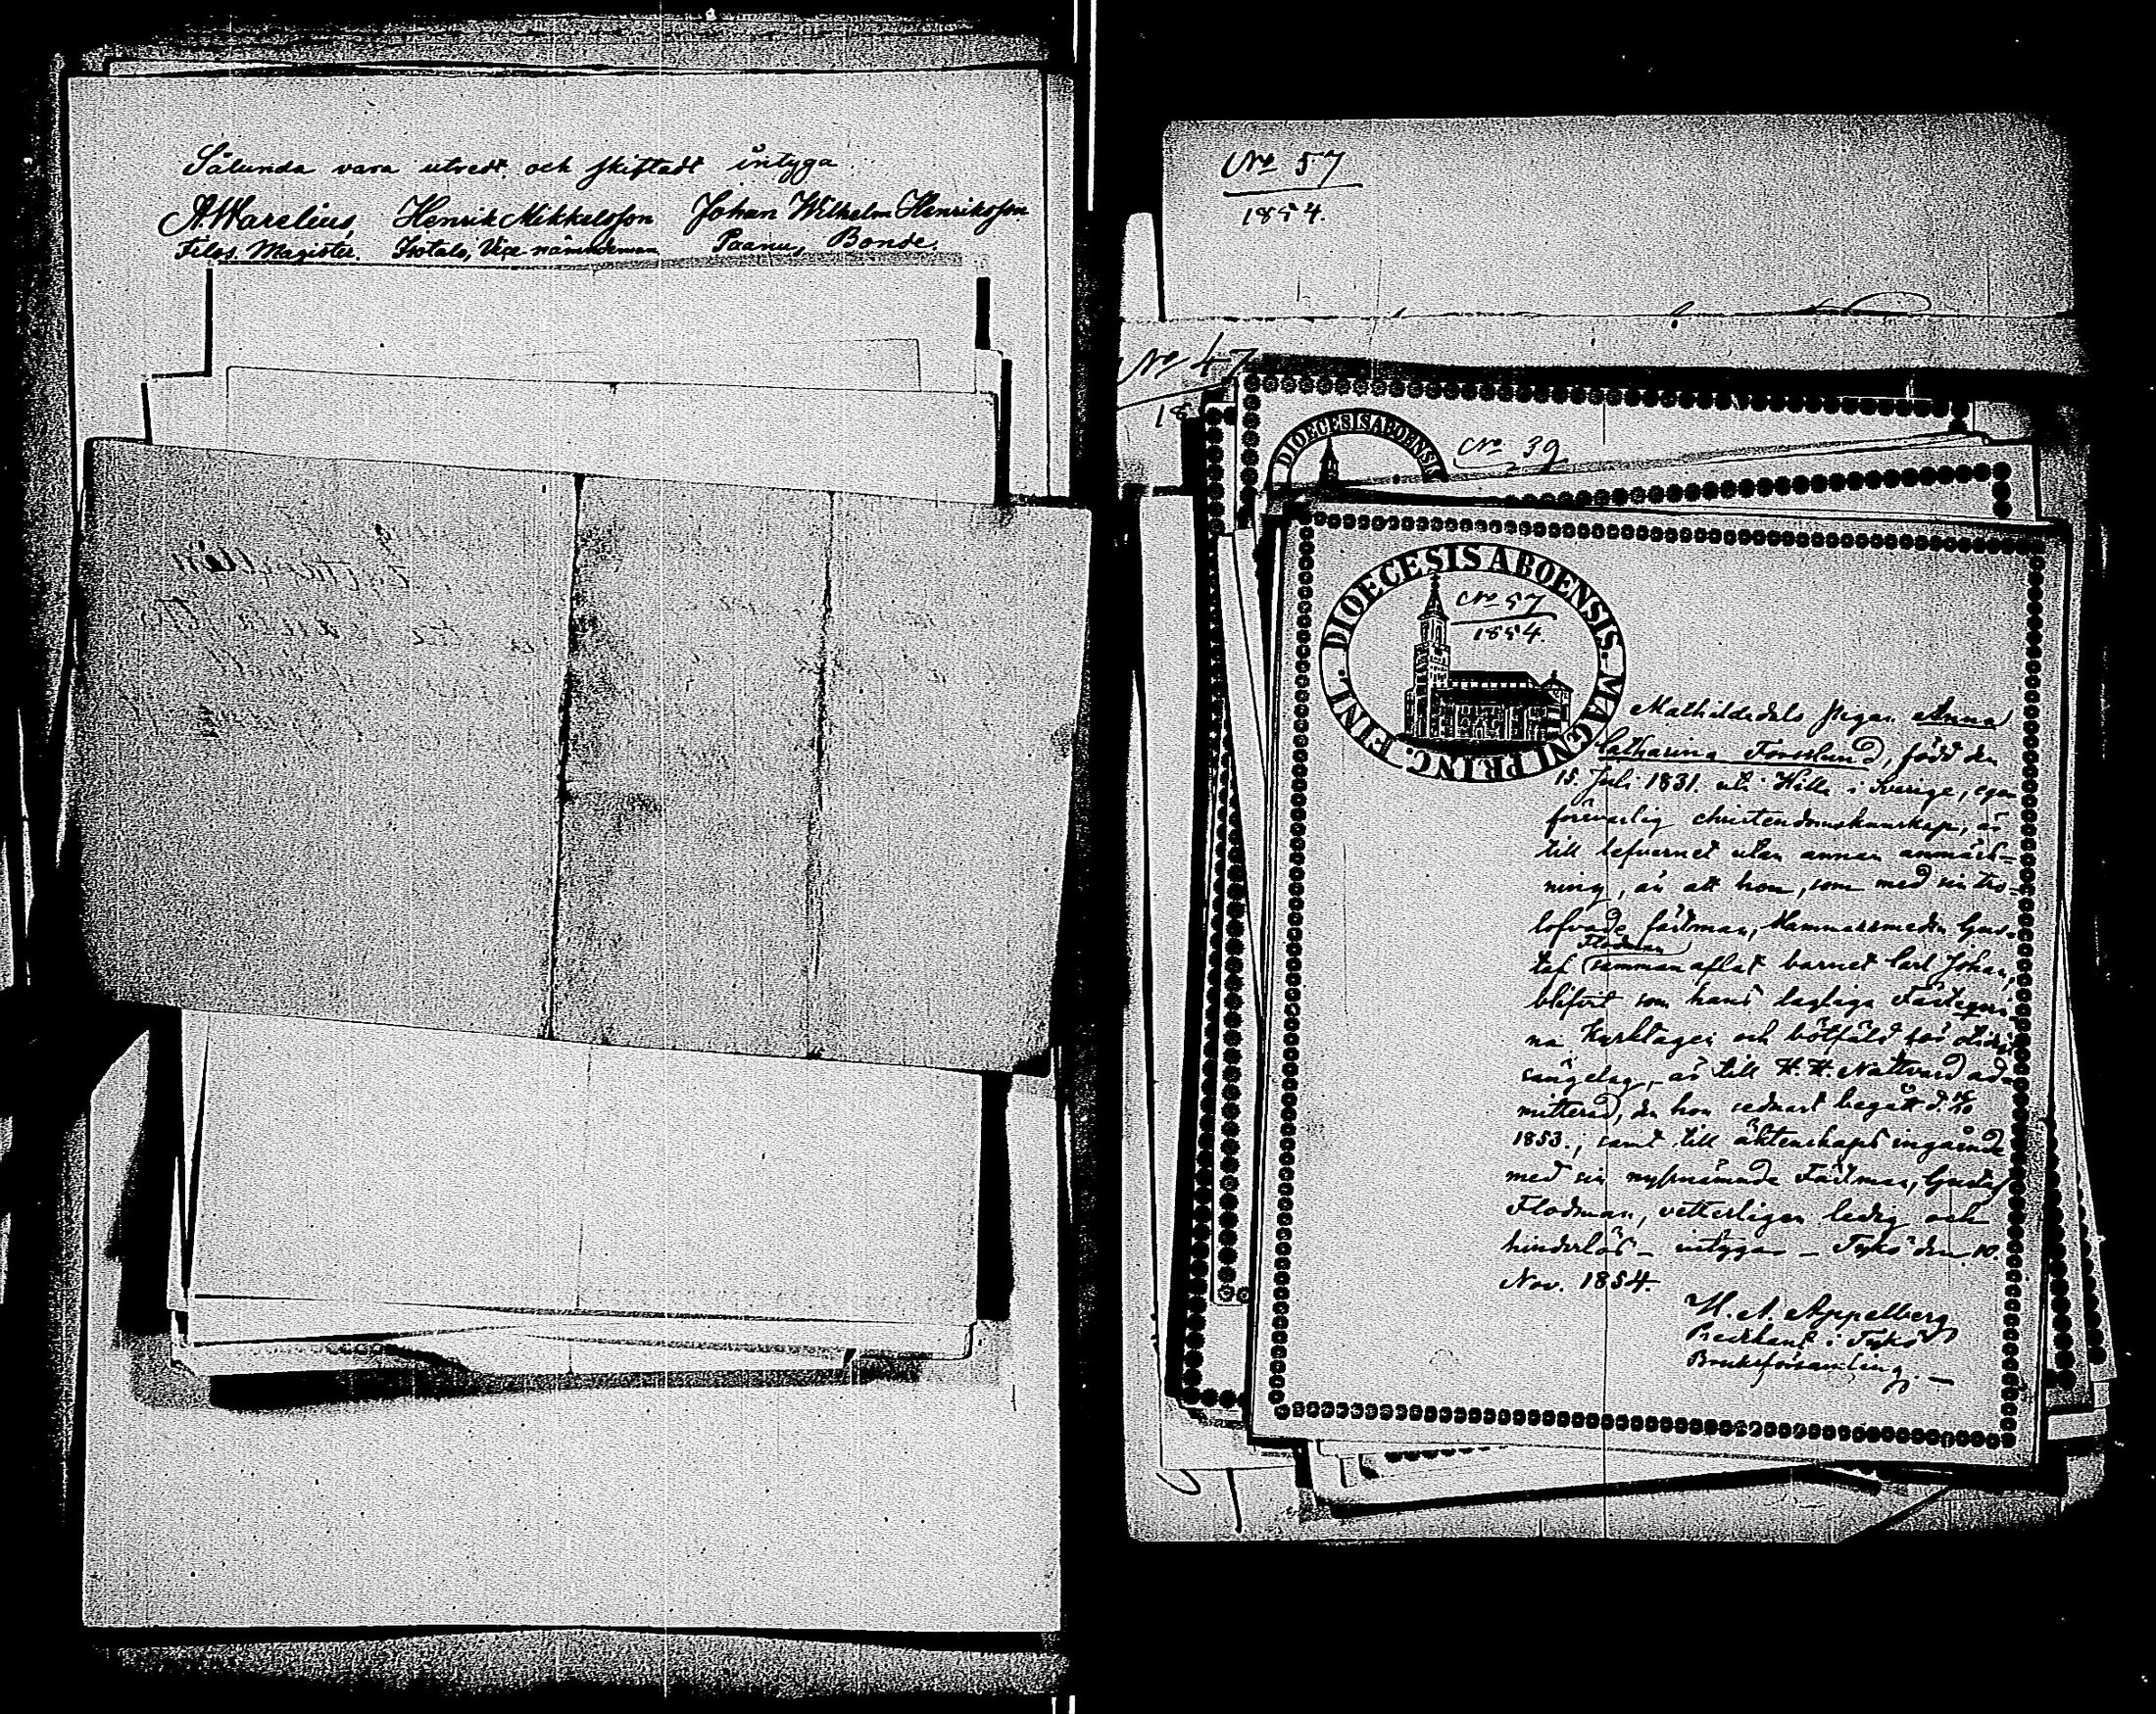 Sålunda vara utredt och skiftadt intyga
A. Warelius, Henrik Mikkelsson Johan Wilhelm Henriksson.
Filos. Magister. Isotalo, Vice nämndeman Paanu, Bonde.
No 57
1854.
No 47
18
DIOECESIS ABOENSIS
No 39
DIOECESIS ABOENSIS · MAGNI PRINC. FINL.
No 57
1854.
Mathildedals pigan Anna
Catharina Forsslund, född den
15 Juli 1831 uti Hille i Sverige, eger
försvarlig christendomskunskap, är
till lefvernet utan annan anmärk-
ning, än att hon, som med sin tro-
lofvade fästman, Hammarsmeden Gus-
Flodman
taf sammanaflat barnet Carl Johan,
blifvit som hans lagliga Fästeqvin-
na Kyrktagen och bötfäld för otidigt
sängelag, är till H. H. Nattvard ad-
mitterad, den hon sednast begått d.
1853.; samt till äktenskaps ingående
med sin nyssnämnde Fästman, Gustaf
Flodman, vetterligen ledig och
hinderlös – intygar – Tykö den 10.
Nov. 1854.
H. A. Appelberg
Predikant i Tykö
Bruksförsamling. –